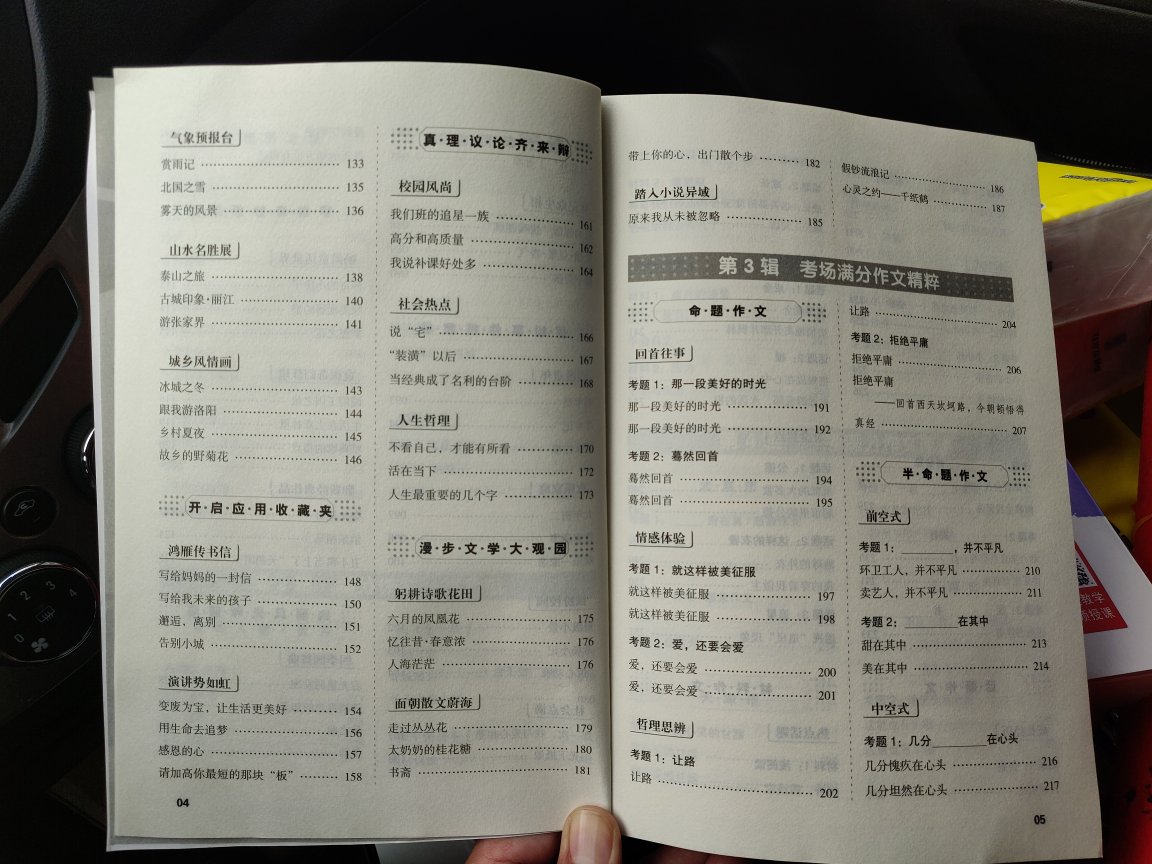 气象预报台
赏雨记 133
北国之雪 135
雾天的风景 136
山水名胜展
泰山之旅 138
古城印象·丽江 140
游张家界 141
城乡风情画
冰城之冬 143
跟我游洛阳 144
乡村夏夜 145
故乡的野菊花 146
开·启·应·用·收·藏·夹
鸿雁传书信
写给妈妈的一封信 148
写给我未来的孩子 150
邂逅、离别 151
告别小城 152
演讲势如虹
变废为宝，让生活更美好 154
用生命去追梦 156
感恩的心 157
请加高你最短的那块“板” 158
04
真·理·议·论·齐·来·辩
校园风尚
我们班的追星一族 161
高分和高质量 162
我说补课好处多 164
社会热点
说“宅” 166
“装潢”以后 167
当经典成了名利的台阶 168
人生哲理
不看自己，才能有所看 170
活在当下 172
人生最重要的几个字 173
漫·步·文·学·大·观·园
躬耕诗歌花田
六月的凤凰花 175
忆往昔·春意浓 176
人海茫茫 176
面朝散文蔚海
走过丛丛花 179
太奶奶的桂花糖 180
书斋 181
带上你的心，出门散个步 182
踏入小说异域
原来我从未被忽略 185
假钞流浪记 186
心灵之约——千纸鹤 187
第3辑 考场满分作文精粹
命·题·作·文
回首往事
考题1：那一段美好的时光
那一段美好的时光 191
那一段美好的时光 192
考题2：蓦然回首
蓦然回首 194
蓦然回首 195
情感体验
考题1：就这样被美征服
就这样被美征服 197
就这样被美征服 198
考题2：爱，还要会爱
爱，还要会爱 200
爱，还要会爱 201
哲理思辨
考题1：让路
让路 202
让路 204
考题2：拒绝平庸
拒绝平庸 206
拒绝平庸
——回首西天坎坷路，今朝顿悟得
真经 207
半·命·题·作·文
前空式
考题1：________，并不平凡
环卫工人，并不平凡 210
卖艺人，并不平凡 211
考题2：________在其中
甜在其中 213
美在其中 214
中空式
考题1：几分________在心头
几分愧疚在心头 216
几分坦然在心头 217
05
1
2
3
4
0
教学
授课